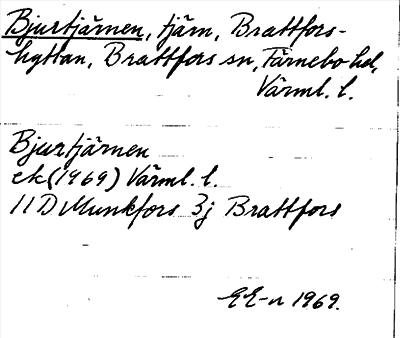 Bjurtjärnen, tjärn, Brattfors-
hyttan, Brattfors sn, Färnebo hd,
Värml. l.
Bjurtjärnen
ek (1969) Värml. l.
11D Munkfors 3j Brattfors
EE-n 1969.